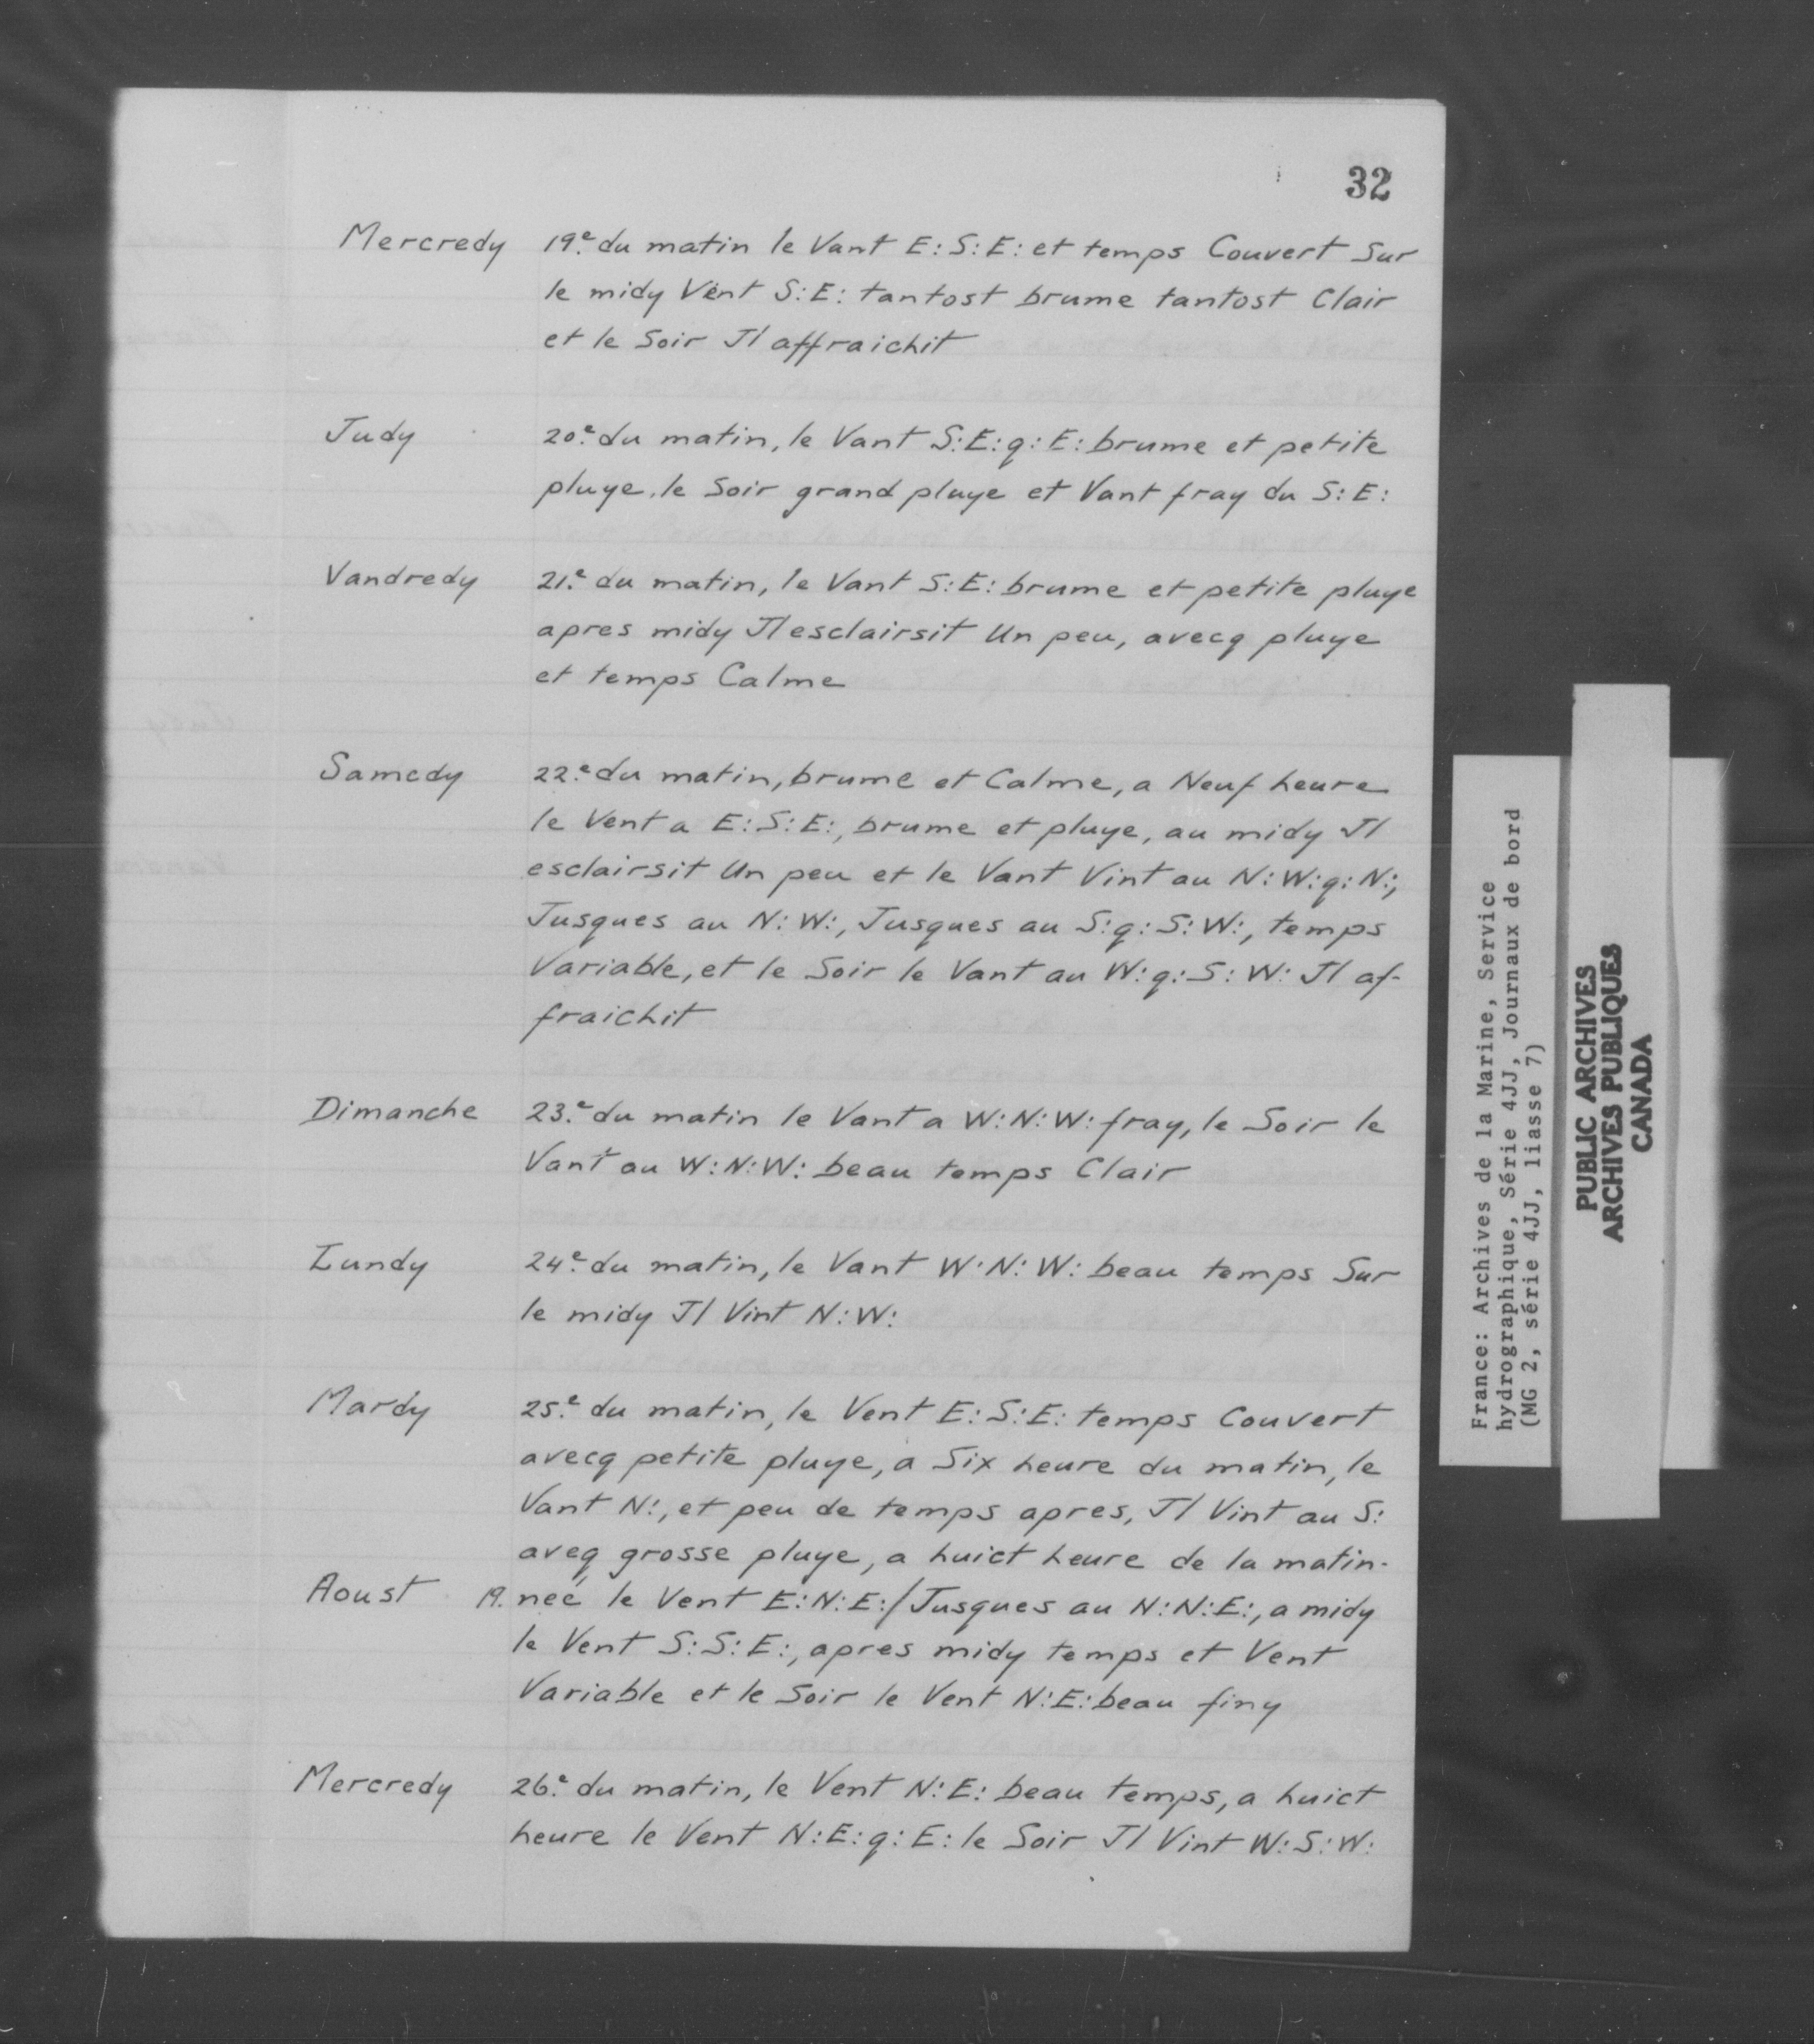 32
Mercredy 19.e du matin le Vant E: S: E: et temps Couvert Sur
le midy Vent S: E: tantost brume tantost Clair
et le Soir Jl affraichit
Judy 20.e du matin, le Vant S: E: q: E: brume et petite
pluye, le Soir grand pluye et Vant fray du S: E:
Vandredy 21.e du matin, le Vant S: E: brume et petite pluye
apres midy Jl esclairsit Un peu, avecq pluye
et temps Calme
Samedy 22.e du matin, brume et Calme, a Neuf heure
le Vent a E: S: E:, brume et pluye, au midy Jl
esclairsit Un peu et le Vant Vint au N: W: q: N:,
Jusques au N: W:, Jusques au S: q: S: W:, temps
Variable, et le Soir le Vant au W: q: S: W: Jl af-
fraichit
Dimanche 23.e du matin le Vant a W: N: W: fray, le Soir le
Vant au W: N: W: beau temps Clair
Lundy 24.e du matin, le Vant W: N: W: beau temps Sur
le midy Jl Vint N: W:
Mardy 25.e du matin, le Vent E: S: E: temps Couvert
avecq petite pluye, a Six heure du matin, le
Vant N:, et peu de temps apres, Jl Vint au S:
aveq grosse pluye, a huict heure de la matin-
Aoust 19. neé le Vent E: N: E:/Jusques au N: N: E:, a midy
le Vent S: S: E:, apres midy temps et Vent
Variable et le Soir le Vent N: E: beau finy
Mercredy 26.e du matin, le Vent N: E: beau temps, a huict
heure le Vent N: E: q: E: le Soir Jl Vint W: S: W:
France: Archives de la Marine, Service
hydrographique, Série 4JJ, Journaux de bord
(MG 2, série 4JJ, liasse 7)
PUBLIC ARCHIVES
ARCHIVES PUBLIQUES
CANADA